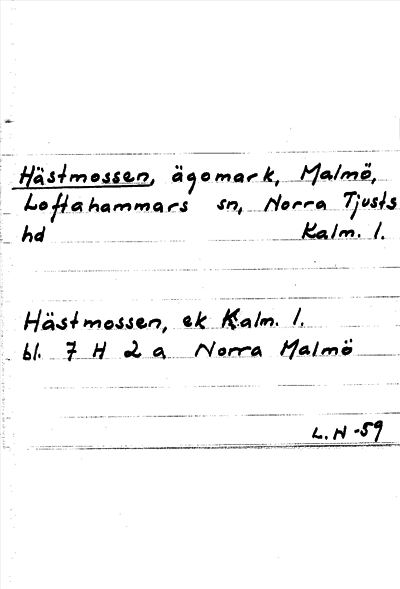 Hästmossen, ägomark, Malmö,
Loftahammars sn, Norra Tjusts
hd Kalm. l.
Hästmossen, ek Kalm. l.
bl. 7 H 2 a Norra Malmö
L.N -59